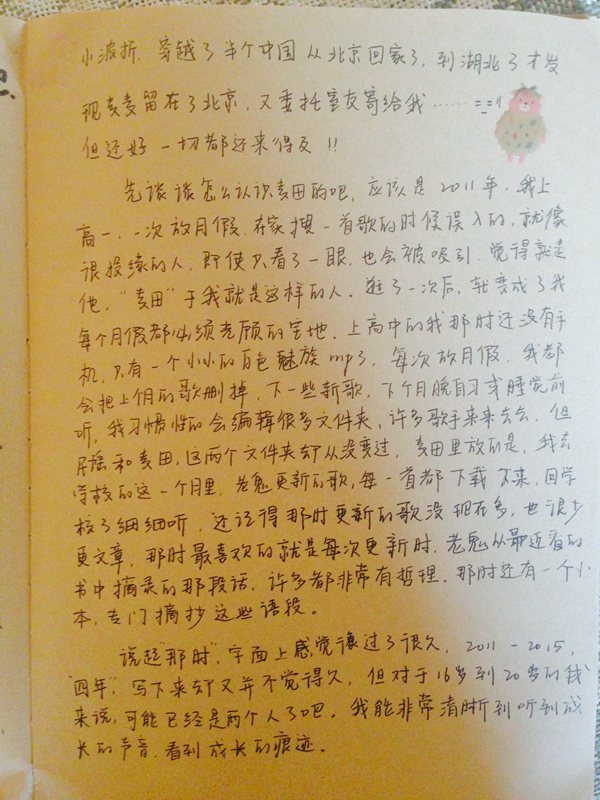 小波折，穿越了半个中国从北京回家了，到湖北了才发
现麦麦留在了北京，又委托室友寄给我……=_=||
但还好一切都还来得及!!
先谈谈怎么认识麦田的吧，应该是2011年，我上
高一，一次放月假，在家搜一首歌的时候误入的，就像
很投缘的人，即使只看了一眼，也会被吸引，觉得就是
他，"麦田"于我就是这样的人。逛了一次后，就变成了我
每个月假都必须光顾的宝地，上高中的我那时还没有手
机，只有一个小小的白色魅族mp3，每次放月假，我都
会把上月的歌删掉，下一些新歌，下个月晚自习或睡觉前
听，我习惯性的会编辑很多文件夹，许多歌手来来去去，但
民谣和麦田，这两个文件夹却从没变过，麦田里放的是，我去
学校的这一个月里，老鬼更新的歌，每一首都下载下来，回学
校了细细听，还记得那时更新的歌没现在多，也很少
更文章，那时最喜欢的就是每次更新时，老鬼从最近看的
书中摘录的那段话，许多都非常有哲理，那时还有一个小
本，专门摘抄这些语段。
说起"那时"，字面上感觉像过了很久，2011-2015，
"四年"，写下来却又并不觉得久，但对于16岁到20岁的我
来说，可能已经是两个人了吧。我能非常清晰到听到成
长的声音，看到成长的痕迹。